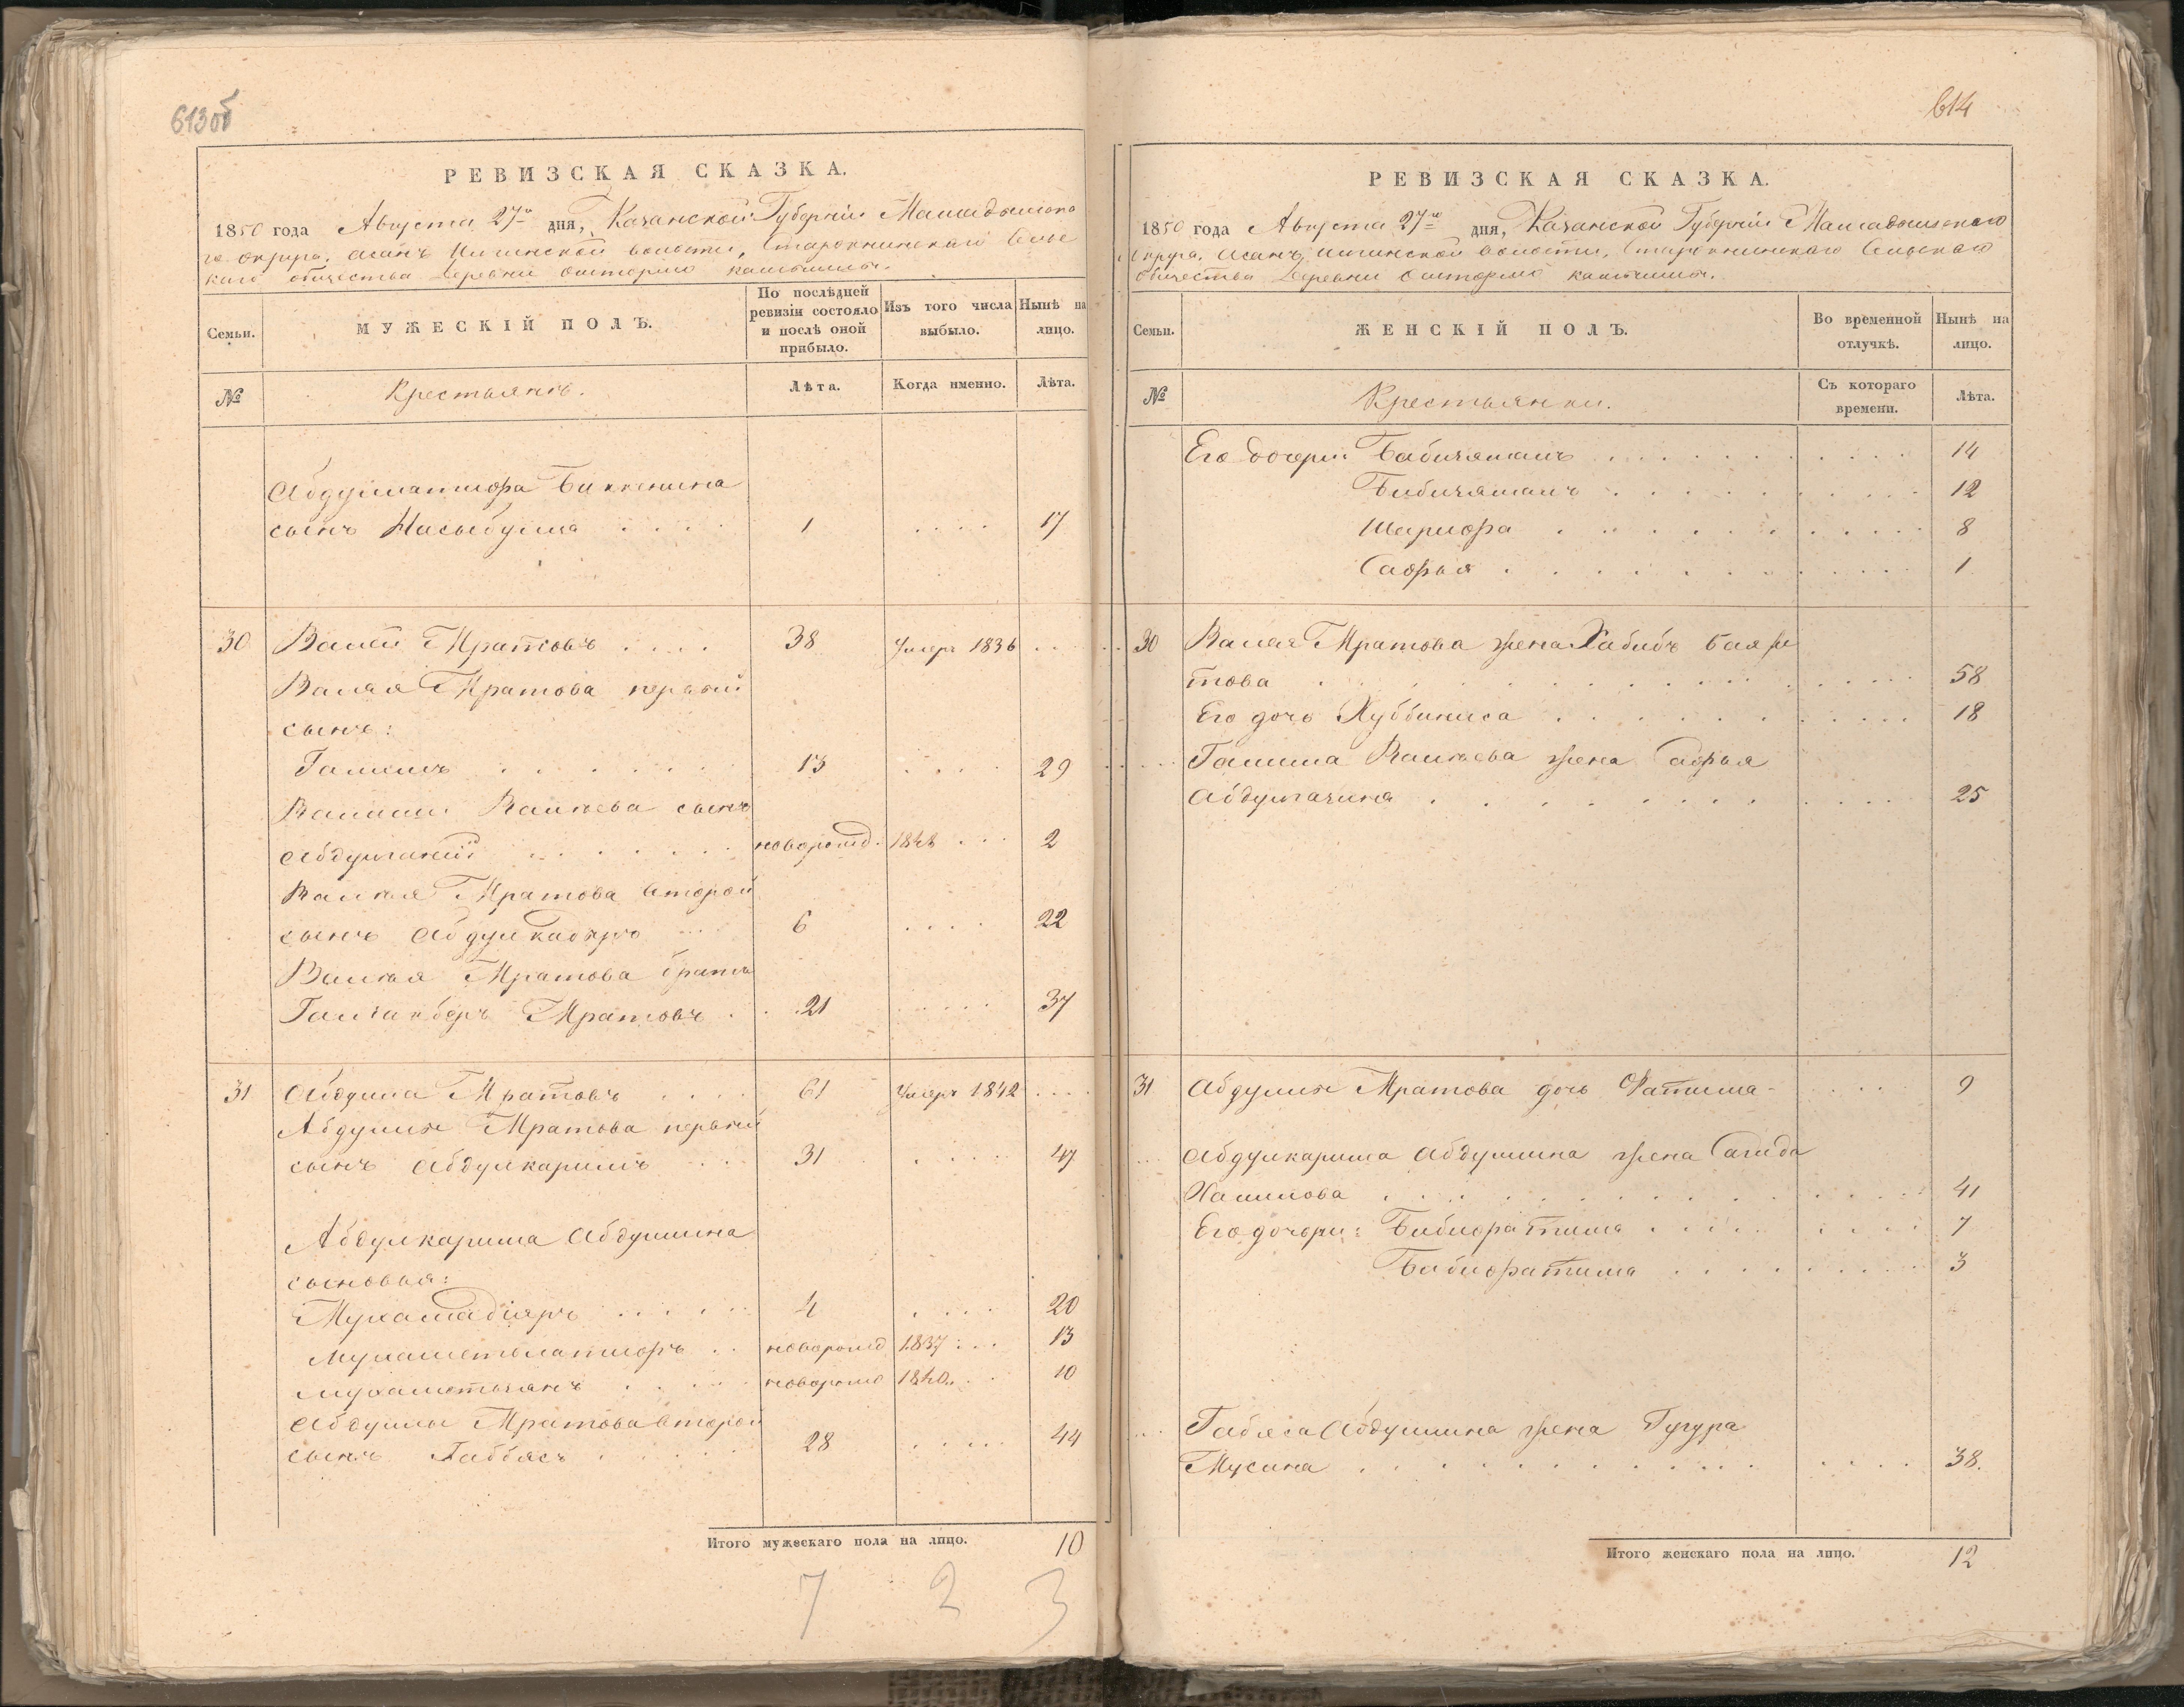 613об
РЕВИЗСКАЯ СКАЗКА.
1850 года Августа 27го дня, Казанской Губерніи Мамадышска
го округа, Асанъ Илгинской волости, Сельс
каго общества Деревни
Семьи.
МУЖЕСКІЙ ПОЛЪ.
По послѣдней ревизіи состояло и послѣ оной прибыло.
Изъ того числа выбыло.
Нынѣ на лицо.
№
Крестьянъ.
Лѣта.
Когда именно.
Лѣта.
Абдуллатифа Биккенина
сынъ Насыбулла . . . . 1 . . . . 17
30 Валей Мратовъ . . . . 38 Умеръ 1836 . .
Валея Мратова первый
сынъ:
Галимъ . . . . . . 13 . . . . 29
Галима Валеева сынъ
Абдулганей . . . . . . новорожд. 1848 . . . 2
Валея Мратова второй
сынъ Абдулкадыръ . . . 6 . . . . 22
Валея Мратова братъ
Галиакберъ Мратовъ . . . 21 . . . . . 37
31 Абдулла Мратовъ . . . . 61 Умеръ 1842 . . . .
Абдуллы Мратова первый
сынъ Абдулкаримъ . . . 31 . . . . . 47
Абдулкарима Абдуллина
сыновья:
Мухамадіяръ . . . . . 4 . . . . 20
Мухаметлатифъ . . новорожд 1837 . . . 13
Мухаметзянъ . . . . новорожд 1840 . . . 10
Абдуллы Мратова второй
сынъ Габбясъ . . . . 28 . . . . . 44
Итого мужескаго пола на лицо. 10
7 2 3
614
РЕВИЗСКАЯ СКАЗКА.
1850 года Августа 27го дня, Казанской Губерніи Мамадышскаго
Округа, Асанъ Илгинской волости, Сельскаго
Общества Деревни
Семьи.
ЖЕНСКІЙ ПОЛЪ.
Во временной отлучкѣ.
Нынѣ на лицо.
№
Крестьянки.
Съ котораго времени.
Лѣта.
Его дочери: Бабизямалъ . . . . . . . . . . 14
Бибизямалъ . . . . . . . . . 12
Шарифа . . . . . . . . . . . 8
Сафья . . . . . . . . . . . . 1
30 Валея Мратова жена Хабибъ Баязи
това . . . . . . . . . . . . . . . 58
Его дочь Хуббиниса . . . . . . . . . . . 18
Галима Валеева жена Сафья
Абдулгазина . . . . . . . . . . . . 25
31 Абдуллы Мратова дочь Фатима . . . 9
Абдулкарима Абдуллина жена Сагида
Халилова . . . . . . . . . . . . . . . 41
Его дочери: Бибифатима . . . . . . . . . . 7
Бабифатима . . . . . . . . . . 3
Габяса Абдуллина жена
Мусина . . . . . . . . . . . . . . . 38.
Итого женскаго пола на лицо. 12